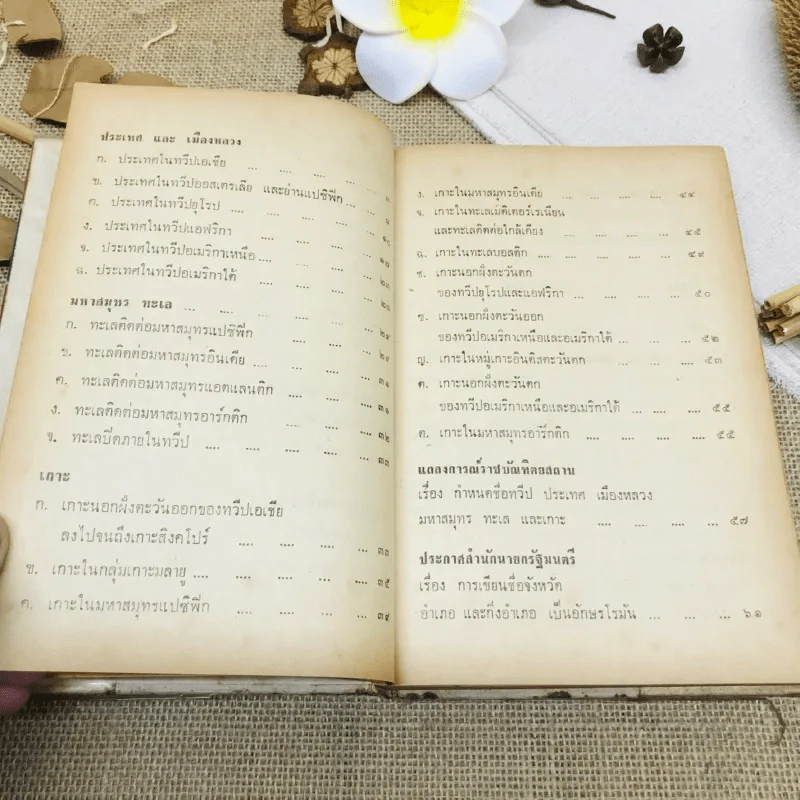 ประเทศ และ เมืองหลวง
ก. ประเทศในทวีปเอเชีย .... .... .... ๑
ข. ประเทศในทวีปออสเตรเลีย และย่านแปซิฟิก ... ...
ค. ประเทศในทวีปยุโรป .... .... .... ...
ง. ประเทศในทวีปแอฟริกา .... .... ... ๑๐
จ. ประเทศในทวีปอเมริกาเหนือ .... .... ...
ฉ. ประเทศในทวีปอเมริกาใต้ .... .... ...
มหาสมุทร ทะเล ... ... ... ... ...
ก. ทะเลติดต่อมหาสมุทรแปซิฟิก .... .... ... ๒๙
ข. ทะเลติดต่อมหาสมุทรอินเดีย .... .... ... ๒๙
ค. ทะเลติดต่อมหาสมุทรแอตแลนติก .... ... ๓๑
ง. ทะเลติดต่อมหาสมุทรอาร์กติก .... .... ... ๓๑
จ. ทะเลปิดภายในทวีป .... .... .... .... ๓๒
เกาะ ๓๓
ก. เกาะนอกฝั่งตะวันออกของทวีปเอเชีย
ลงไปจนถึงเกาะสิงคโปร์ .... .... ... ... ๓๓
ข. เกาะในกลุ่มเกาะมลายู .... .... .... ... ๓๕
ค. เกาะในมหาสมุทรแปซิฟิก .... .... ... ... ๓๙
ง. เกาะในมหาสมุทรอินเดีย .... .... .... ๔๔
จ. เกาะในทะเลเมดิเตอร์เรเนียน
และทะเลติดต่อใกล้เคียง .... .... .... ๔๕
ฉ. เกาะในทะเลบอลติก .... .... .... ... ๔๙
ช. เกาะนอกฝั่งตะวันตก
ของทวีปยุโรปและแอฟริกา .... .... ... ๕๐
ซ. เกาะนอกฝั่งตะวันออก
ของทวีปอเมริกาเหนือและอเมริกาใต้ ... .... ... ๕๒
ญ. เกาะในหมู่เกาะอินดิสตะวันตก .... .... ... ๕๓
ด. เกาะนอกฝั่งตะวันตก
ของทวีปอเมริกาเหนือและอเมริกาใต้ ... .... ... ๕๕
ต. เกาะในมหาสมุทรอาร์กติก .... .... .... ... ๕๕
แถลงการณ์ราชบัณฑิตยสถาน
เรื่อง กำหนดชื่อทวีป ประเทศ เมืองหลวง
มหาสมุทร ทะเล และเกาะ .... .... ... ... ๕๗
ประกาศสำนักนายกรัฐมนตรี
เรื่อง การเขียนชื่อจังหวัด
อำเภอ และกิ่งอำเภอ เป็นอักษรโรมัน ... ... ... ๖๑